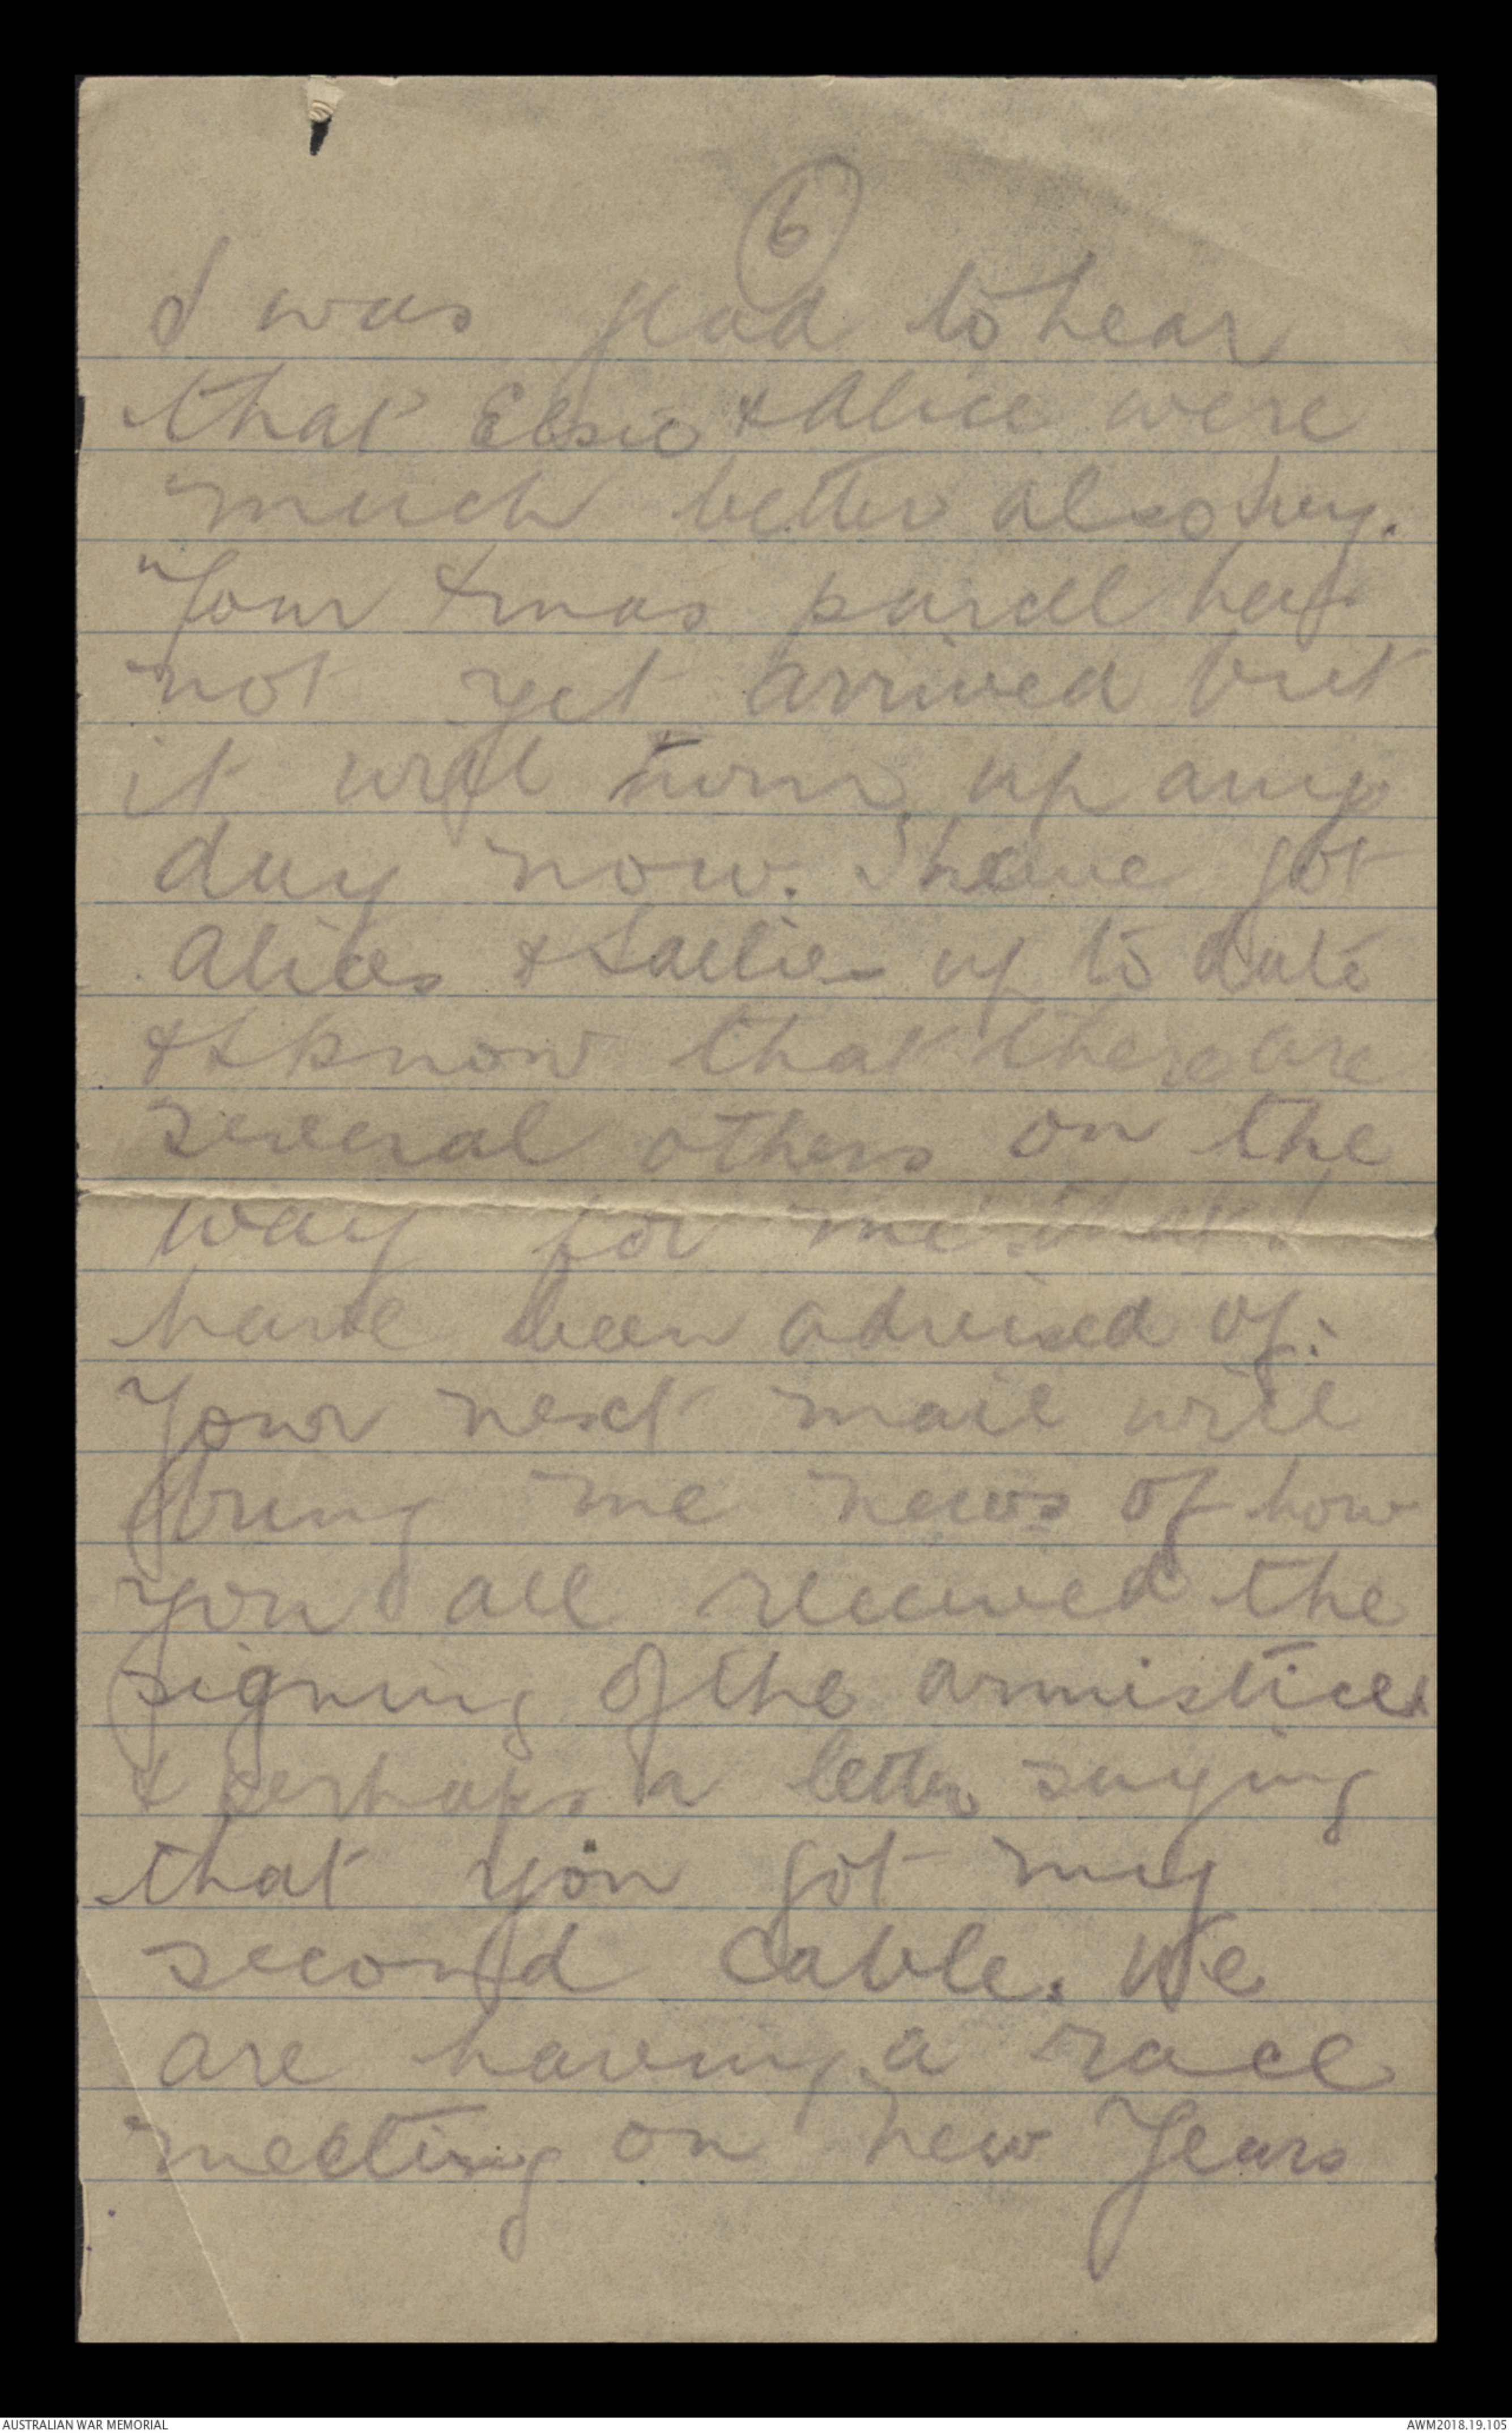 6
I was glad to hear
that Elsie & Alice were
much better also
Your Xmas parcel has
not yet arrived but
it will turn up any
day now. I have got
Alices & Sallies up to date
& I know that there are
several others on the
way for me that I
have been advised of.
Your next mail will
bring me news of how
you all received the
signing of the armistice
& perhaps a letter saying
that you got my
second cable. We
are having a race
meeting on New Years
AUSTRALIAN WAR MEMORIAL
AWM2018.19.105